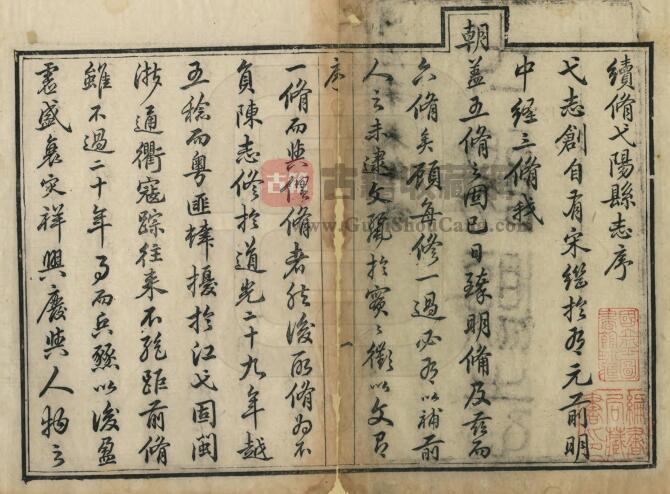 續脩弋陽縣志序
弋志創自有宋繼於有元前明
中經三脩我
朝蓋五脩之固已日臻明備及茲而
六脩矣顧每修一過必有以補前
人之未逮文獻於實徵以文
序
一
一脩而與脩者然後所脩為不
負陳志修於道光二十九年越
五稔而粵匪擾於江弋固閩
浙通衢寇踪往來不絕距前脩
雖不過二十年而兵燹以後盈
虛盛衰灾祥興廢與人物之
古籍
www.GuJiShouCang.Com